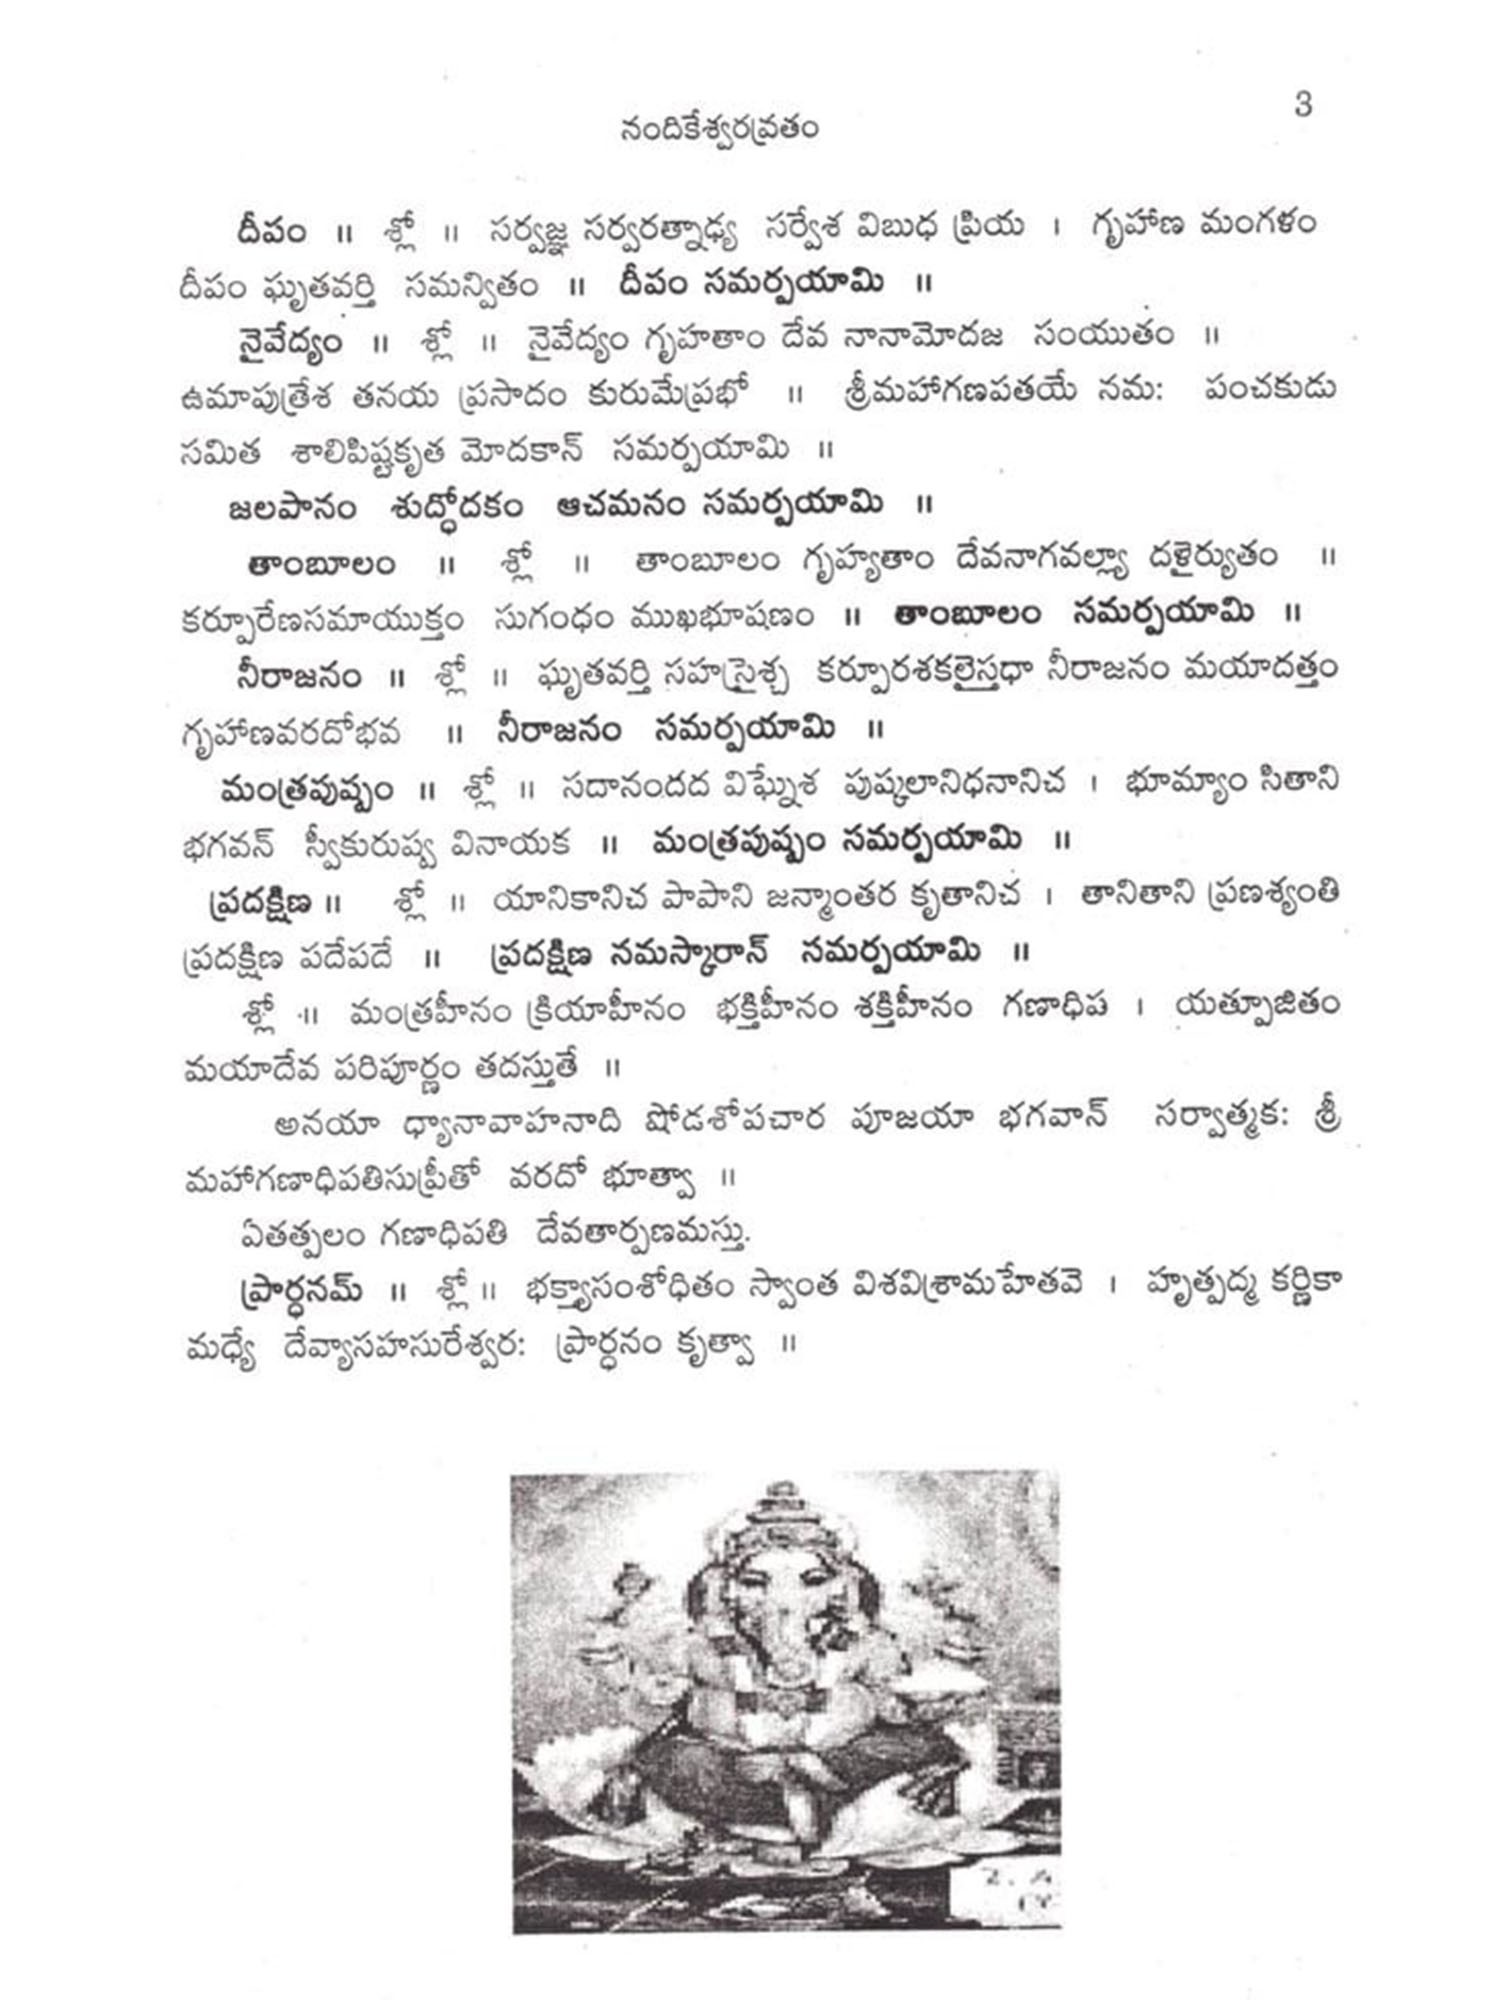 3
నందికేశ్వరవ్రతం
దీపం ॥ శ్లో ॥ సర్వజ్ఞ సర్వరత్నాఢ్య సర్వేశ విబుధ ప్రియ । గృహాణ మంగళం
దీపం ఘృతవర్తి సమన్వితం ॥ దీపం సమర్పయామి ॥
నైవేద్యం ॥ శ్లో ॥ నైవేద్యం గృహతాం దేవ నానామోదజ సంయుతం ॥
ఉమాపుత్రేశ తనయ ప్రసాదం కురుమేప్రభో ॥ శ్రీమహాగణపతయే నమః పంచకుడు
సమిత శాలిపిష్టకృత మోదకాన్ సమర్పయామి ॥
జలపానం శుద్ధోదకం ఆచమనం సమర్పయామి ॥
తాంబూలం ॥ శ్లో ॥ తాంబూలం గృహ్యతాం దేవనాగవల్ల్యా దళైర్యుతం ॥
కర్పూరేణసమాయుక్తం సుగంధం ముఖభూషణం ॥ తాంబూలం సమర్పయామి ॥
నీరాజనం ॥ శ్లో ॥ ఘృతవర్తి సహస్రైశ్చ కర్పూరశకలైస్తధా నీరాజనం మయాదత్తం
గృహాణవరదోభవ ॥ నీరాజనం సమర్పయామి ॥
మంత్రపుష్పం ॥ శ్లో ॥ సదానందద విఘ్నేశ పుష్కలానిధనానిచ । భూమ్యాం సితాని
భగవన్ స్వీకురుష్వ వినాయక ॥ మంత్రపుష్పం సమర్పయామి ॥
ప్రదక్షిణ ॥ శ్లో ॥ యానికానిచ పాపాని జన్మాంతర కృతానిచ । తానితాని ప్రణశ్యంతి
ప్రదక్షిణ పదేపదే ॥ ప్రదక్షిణ నమస్కారాన్ సమర్పయామి ॥
శ్లో ॥ మంత్రహీనం క్రియాహీనం భక్తిహీనం శక్తిహీనం గణాధిప । యత్పూజితం
మయాదేవ పరిపూర్ణం తదస్తుతే ॥
అనయా ధ్యానావాహనాది షోడశోపచార పూజయా భగవాన్ సర్వాత్మకః శ్రీ
మహాగణాధిపతిసుప్రీతో వరదో భూత్వా ॥
ఏతత్ఫలం గణాధిపతి దేవతార్పణమస్తు.
ప్రార్ధనమ్ ॥ శ్లో ॥ భక్త్యాసంశోధితం స్వాంత విశవిశ్రామహేతవె । హృత్పద్మ కర్ణికా
మధ్యే దేవ్యాసహసురేశ్వరః ప్రార్ధనం కృత్వా ॥